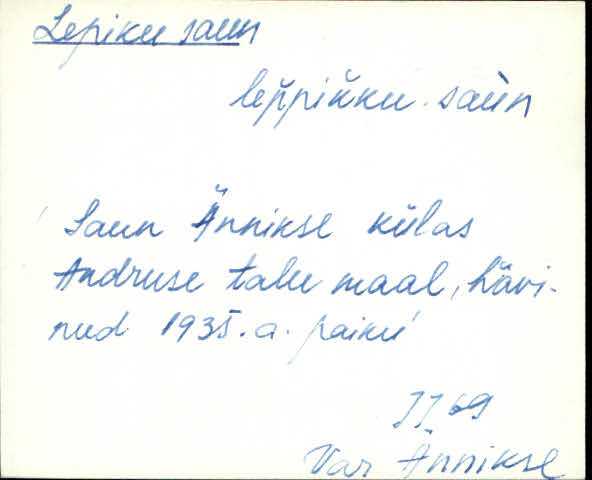 Lepiku saun
lep̌pik̆ku saùn
Saun Ännikse külas
Andruse talu maal, hävi-
nud 1935. a. paiku
JJ 69
Var Ännikse